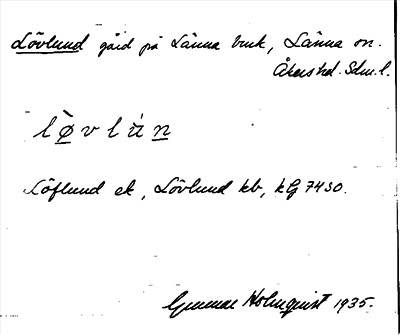 Lövlund gård på Länna bruk, Länna sn.
Åkers hd. Sdm.l.
lø̀vlún
Löflund ek, Lövlund kb, kG 7430.
Gunnar Holmquist 1935.